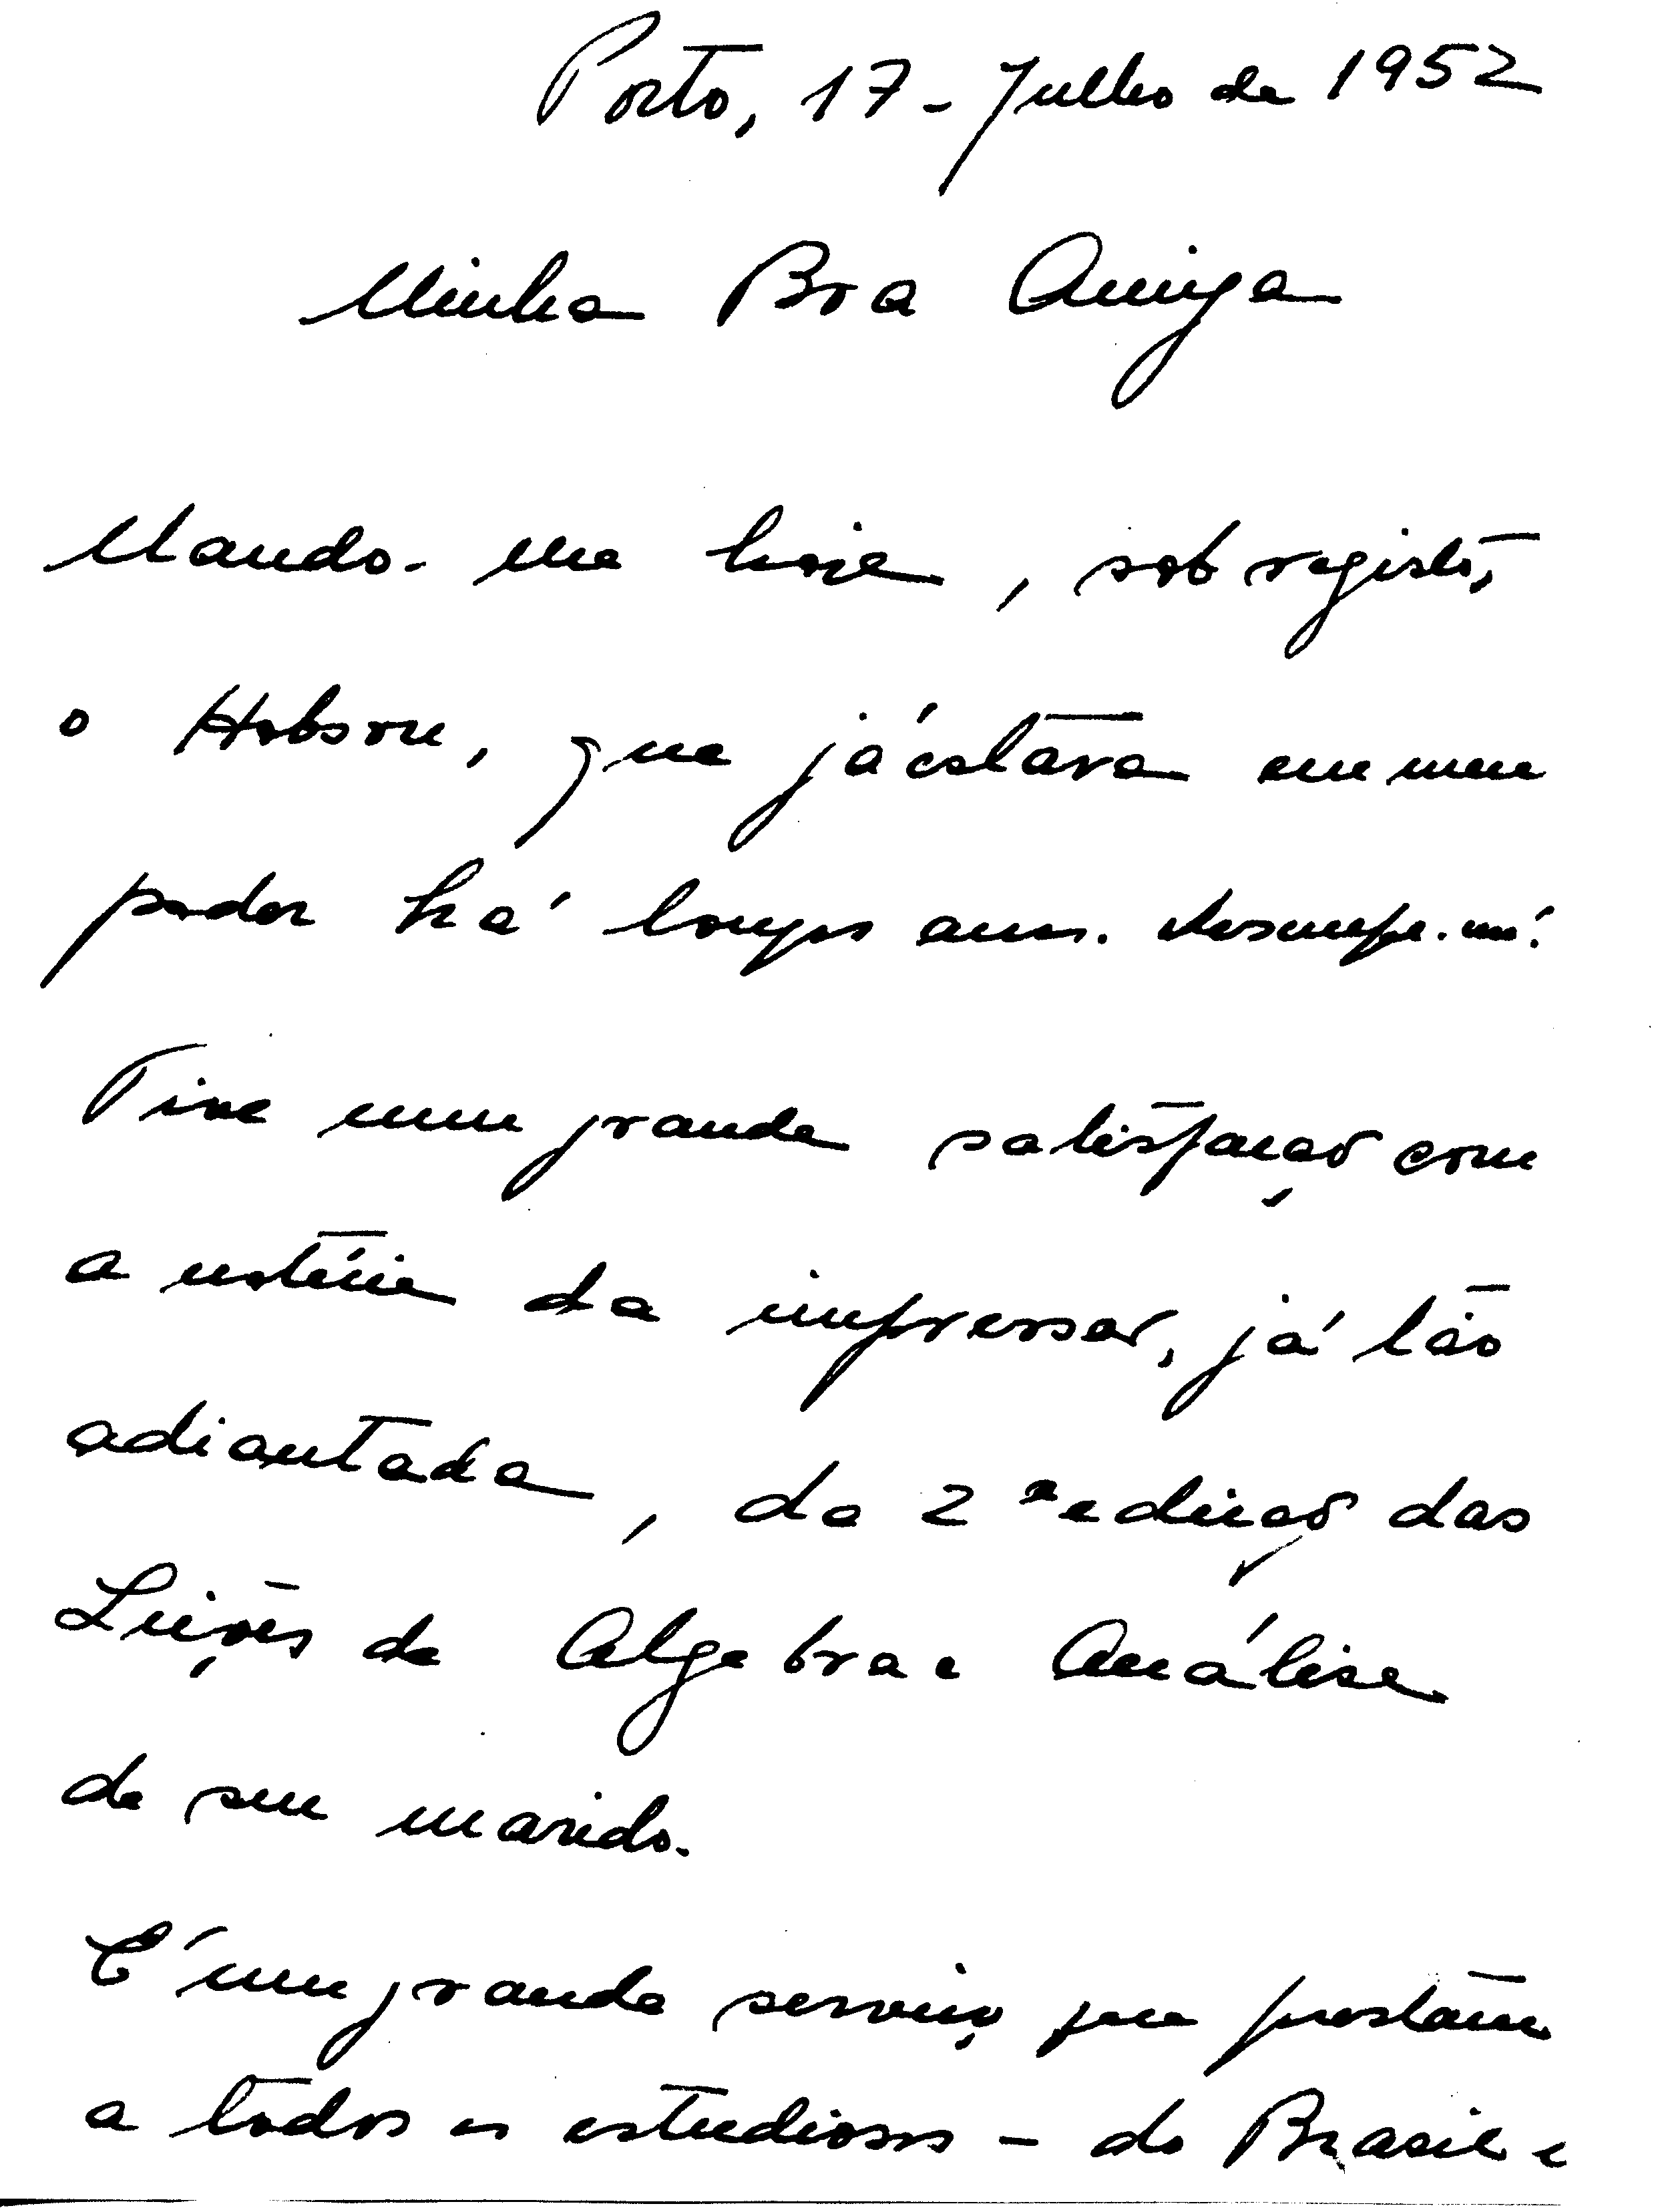 Porto, 17 - Julho de 1952
Minha Boa Amiga
Mando-lhe hoje, sob registo,
o Hobson, que já estava em meu
poder há longos anos. Desculpe-me!
Tive uma grande satisfação com
a notícia da impressão, já tão
adiantada, da 2ª edição das
Lições de Algebra e Análise
de seu marido.
É um grande serviço que prestam
a todos os estudiosos - do Brasil e